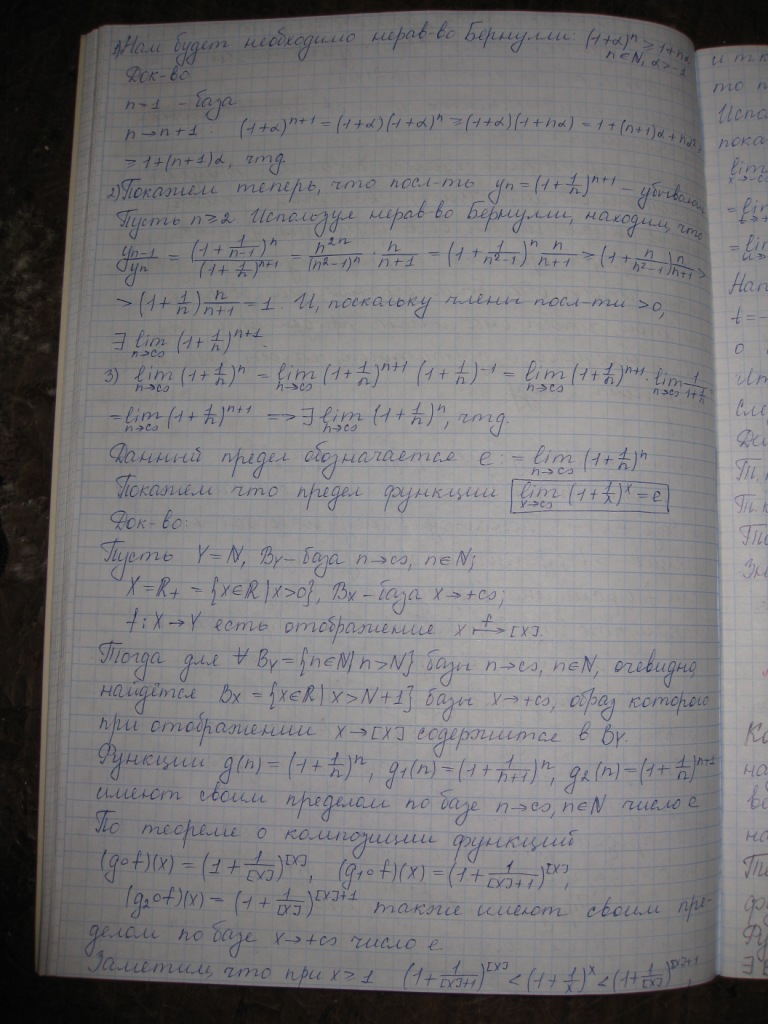 1) Нам будет необходимо нерав-во Бернулли: (1+α)ⁿ ≥ 1+nα
n∈N, α>-1
Док-во
n=1 - база
n→n+1: (1+α)ⁿ⁺¹ = (1+α)(1+α)ⁿ ≥ (1+α)(1+nα) = 1+(n+1)α+nα²
≥ 1+(n+1)α, чтд.
2) Покажем теперь, что посл-ть yₙ = (1+1/n)ⁿ⁺¹ – убывающая
Пусть n≥2 Используя нерав-во Бернулли, находим, что
yₙ₋₁/yₙ = (1+1/(n-1))ⁿ/(1+1/n)ⁿ⁺¹ = n²ⁿ/(n²-1)ⁿ · n/(n+1) = (1+1/(n²-1))ⁿ n/(n+1) ≥ (1+n/(n²-1)) n/(n+1) >
> (1+1/n) n/(n+1) = 1. И, поскольку члены посл-ти >0,
∃ lim n→∞ (1+1/n)ⁿ⁺¹.
3) lim n→∞ (1+1/n)ⁿ = lim n→∞ (1+1/n)ⁿ⁺¹ (1+1/n)⁻¹ = lim n→∞ (1+1/n)ⁿ⁺¹ · lim n→∞ 1/(1+1/n) =
= lim n→∞ (1+1/n)ⁿ⁺¹ => ∃ lim n→∞ (1+1/n)ⁿ, чтд.
Данный предел обозначается e := lim n→∞ (1+1/n)ⁿ
Покажем что предел функции lim x→∞ (1+1/x)ˣ = e
Док-во:
Пусть Y=N, B_Y – база n→∞, n∈N;
X=R₊ = {x∈R | x>0}, B_X – база x→+∞;
f: X→Y есть отображение x ↦ᶠ [x].
Тогда для ∀ B_Y = {n∈N | n>N} базы n→∞, n∈N, очевидно,
найдётся B_X = {x∈R | x>N+1} базы x→+∞, образ которого
при отображении x→[x] содержится в B_Y.
Функции g(n) = (1+1/n)ⁿ, g₁(n) = (1+1/(n+1))ⁿ, g₂(n) = (1+1/n)ⁿ⁺¹
имеют своим пределом по базе n→∞, n∈N число e
По теореме о композиции функций
(g∘f)(x) = (1+1/[x])^[x], (g₁∘f)(x) = (1+1/([x]+1))^[x],
(g₂∘f)(x) = (1+1/[x])^([x]+1) также имеют своим пре-
делом по базе x→+∞ число e.
Заметим, что при x≥1 (1+1/([x]+1))^[x] < (1+1/x)ˣ < (1+1/[x])^([x]+1),